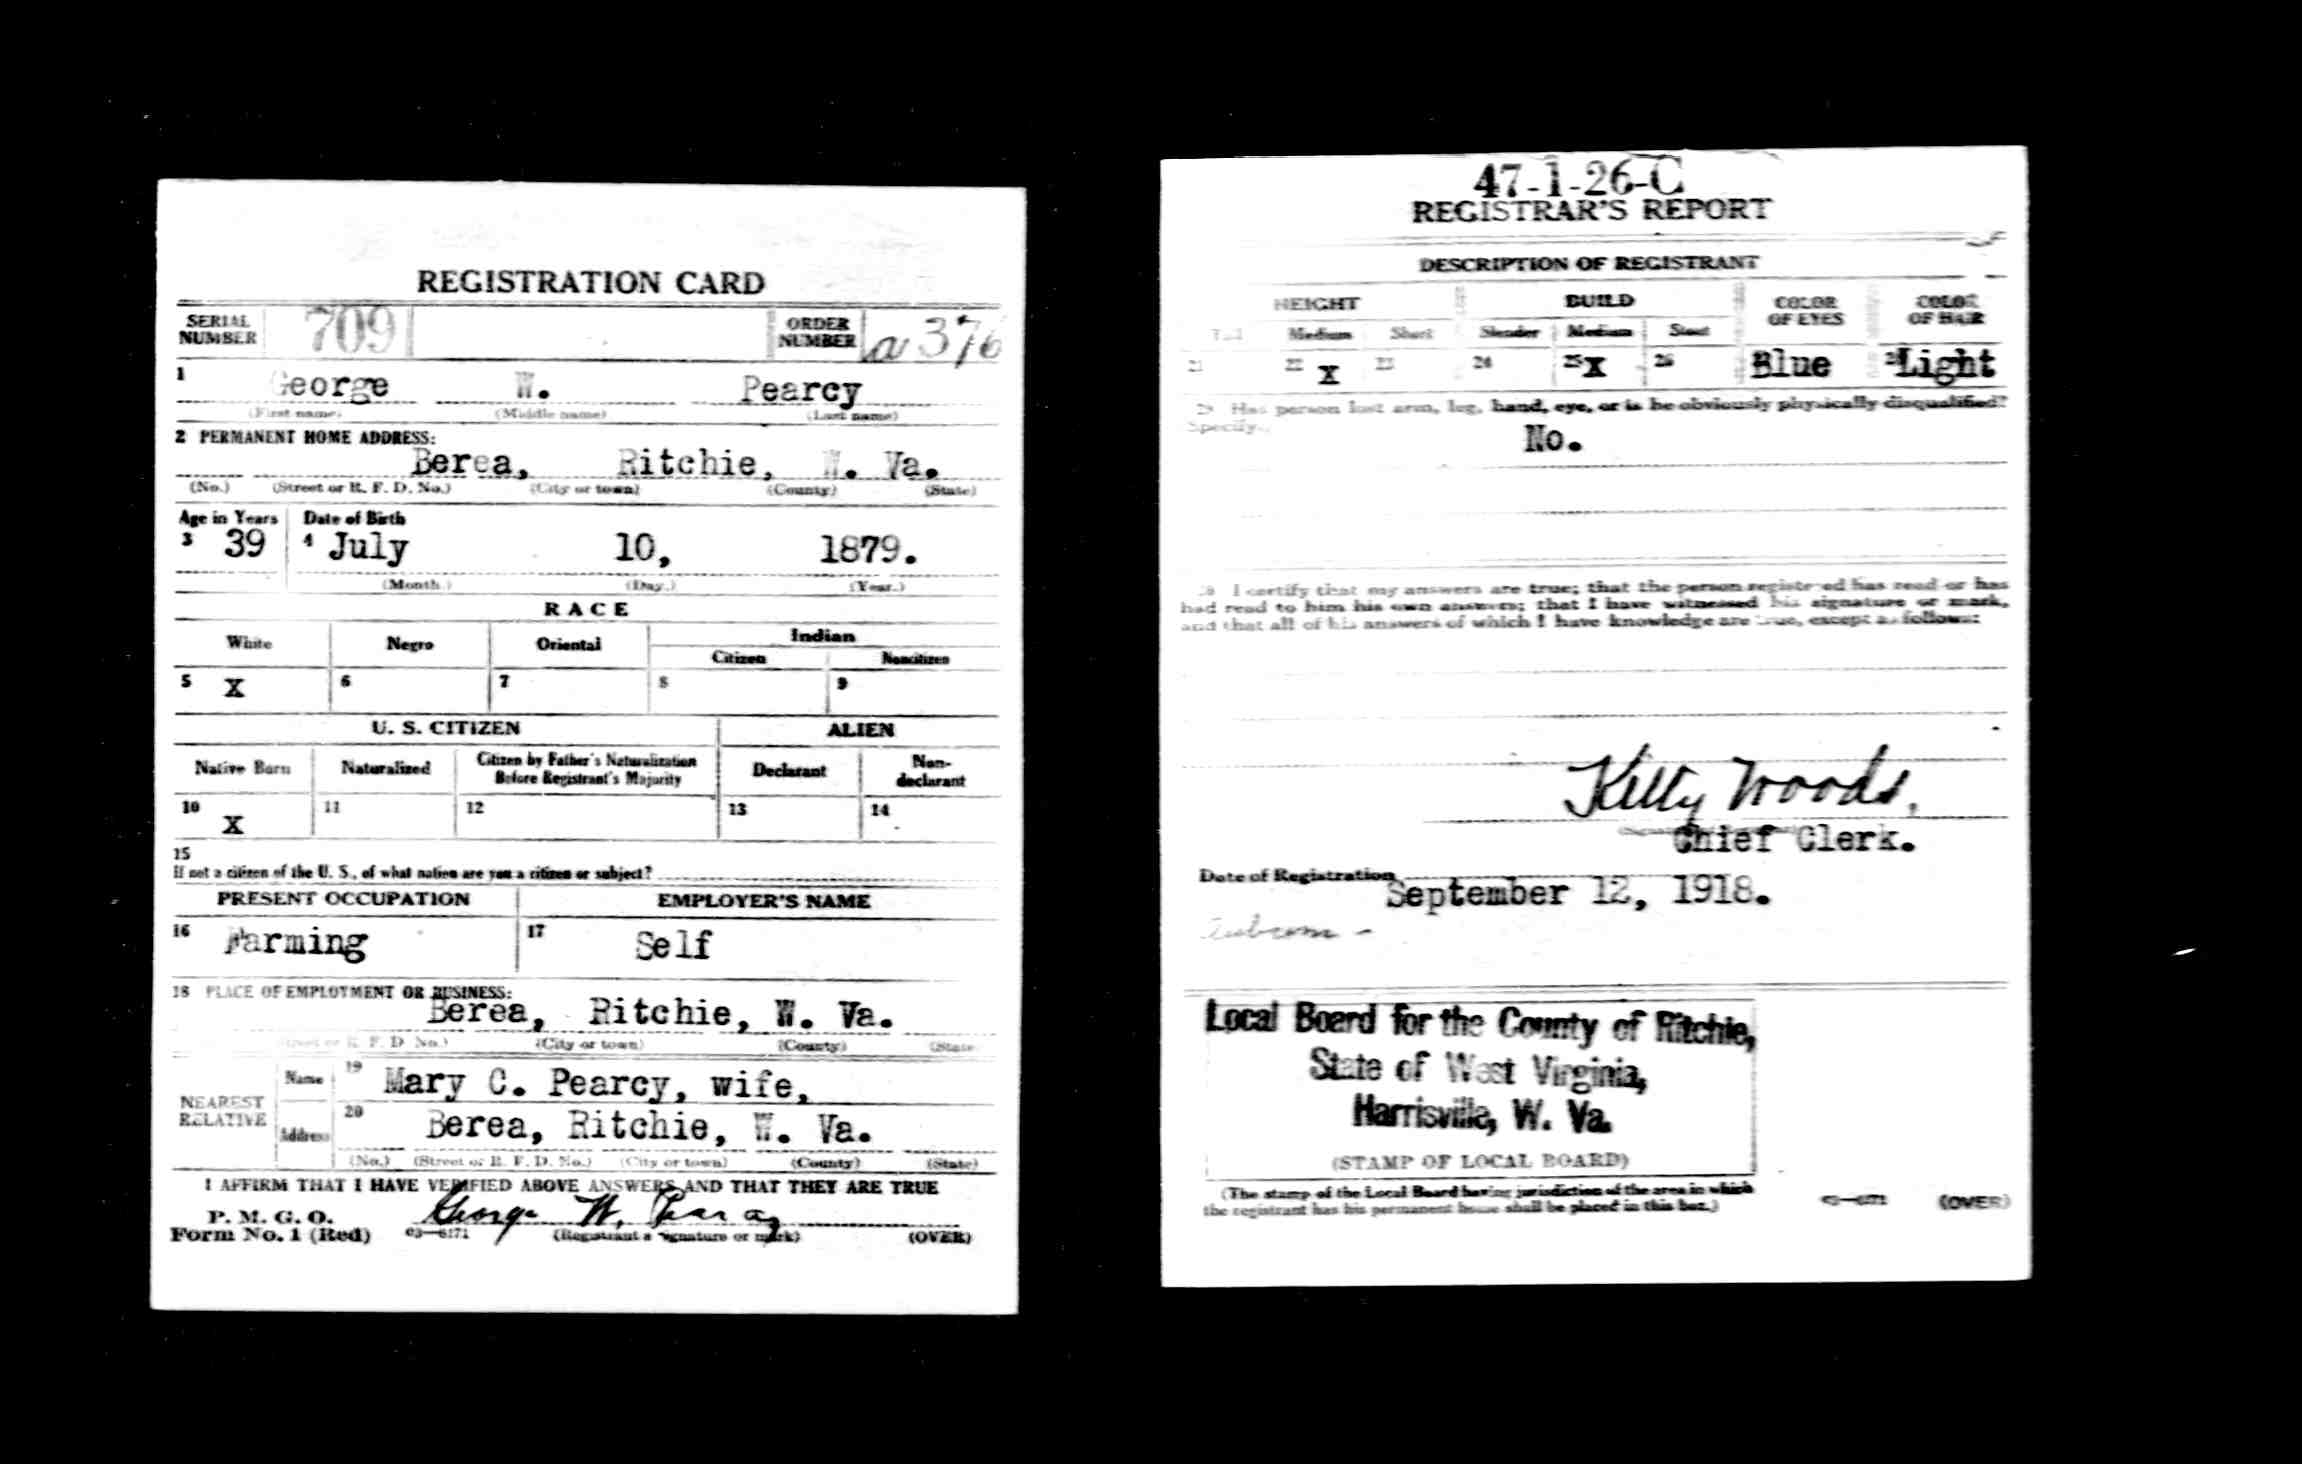 REGISTRATION CARD
SERIAL NUMBER 709 ORDER NUMBER a 376
1 George W. Pearcy
(First name) (Middle name) (Last name)
2 PERMANENT HOME ADDRESS:
Berea, Ritchie, W. Va.
(No.) (Street or R. F. D. No.) (City or town) (County) (State)
Age in Years Date of Birth
3 39 4 July 10, 1879.
(Month.) (Day.) (Year.)
RACE
White Negro Oriental Indian
Citizen Noncitizen
5 X 6 7 8 9
U. S. CITIZEN ALIEN
Native Born Naturalized Citizen by Father's Naturalization Before Registrant's Majority Declarant Non-declarant
10 X 11 12 13 14
15
If not a citizen of the U. S., of what nation are you a citizen or subject?
PRESENT OCCUPATION EMPLOYER'S NAME
16 Farming 17 Self
18 PLACE OF EMPLOYMENT OR BUSINESS:
Berea, Ritchie, W. Va.
(Street or R. F. D. No.) (City or town) (County) (State)
NEAREST RELATIVE
Name 19 Mary C. Pearcy, wife,
Address 20 Berea, Ritchie, W. Va.
(No.) (Street or R. F. D. No.) (City or town) (County) (State)
I AFFIRM THAT I HAVE VERIFIED ABOVE ANSWERS AND THAT THEY ARE TRUE
P. M. G. O.
Form No. 1 (Red) 03—6171 George W. Pearcy
(Registrant's signature or mark) (OVER)
47-1-26-C
REGISTRAR'S REPORT
DESCRIPTION OF REGISTRANT
HEIGHT BUILD COLOR OF EYES COLOR OF HAIR
Tall Medium Short Slender Medium Stout
21 22 X 23 24 25 X 26 Blue Light
29 Has person lost arm, leg, hand, eye, or is he obviously physically disqualified?
Specify.
No.
30 I certify that my answers are true; that the person registered has read or has
had read to him his own answers; that I have witnessed his signature or mark,
and that all of his answers of which I have knowledge are true, except as follows:
Kitty Woods,
Chief Clerk.
Date of Registration September 12, 1918.
Local Board for the County of Ritchie,
State of West Virginia,
Harrisville, W. Va.
(STAMP OF LOCAL BOARD)
(The stamp of the Local Board having jurisdiction of the area in which
the registrant has his permanent home shall be placed in this box.)
03—6171 (OVER)